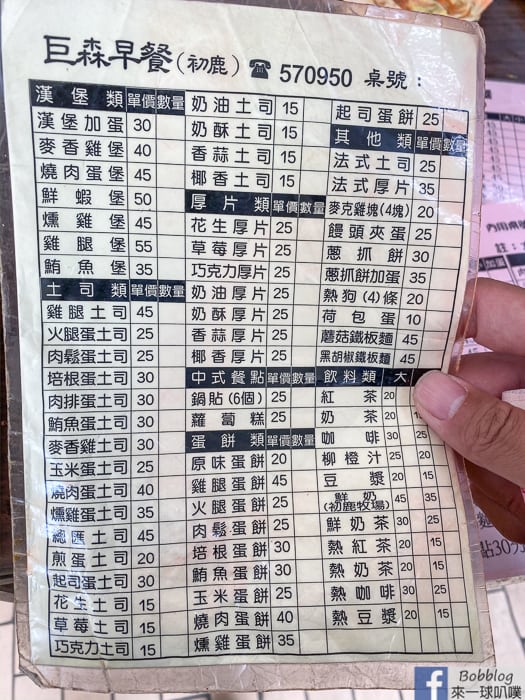 巨森早餐(初鹿) ☎ 570950 桌號:
漢堡類 單價 數量
漢堡加蛋 30
麥香雞堡 40
燒肉蛋堡 45
鮮蝦堡 50
燻雞堡 45
雞腿堡 55
鮪魚堡 35
土司類 單價 數量
雞腿土司 45
火腿蛋土司 25
肉鬆蛋土司 25
培根蛋土司 30
肉排蛋土司 30
鮪魚蛋土司 30
麥香雞土司 30
玉米蛋土司 25
燒肉蛋土司 40
燻雞蛋土司 35
總匯土司 45
煎蛋土司 20
起司蛋土司 30
花生土司 15
草莓土司 15
巧克力土司 15
奶油土司 15
奶酥土司 15
香蒜土司 15
椰香土司 15
厚片類 單價 數量
花生厚片 25
草莓厚片 25
巧克力厚片 25
奶油厚片 25
奶酥厚片 25
香蒜厚片 25
椰香厚片 25
中式餐點 單價 數量
鍋貼(6個) 25
蘿蔔糕 25
蛋餅類 單價 數量
原味蛋餅 20
雞腿蛋餅 45
火腿蛋餅 25
肉鬆蛋餅 25
培根蛋餅 30
鮪魚蛋餅 30
玉米蛋餅 25
燒肉蛋餅 40
燻雞蛋餅 35
起司蛋餅 25
其他類 單價 數量
法式土司 25
法式厚片 35
麥克雞塊(4塊) 20
饅頭夾蛋 25
蔥抓餅 30
蔥抓餅加蛋 35
熱狗(4)條 20
荷包蛋 10
蘑菇鐵板麵 45
黑胡椒鐵板麵 45
飲料類 大
紅茶 20
奶茶 20
咖啡 30 25
柳橙汁 25 20
豆漿 20 15
鮮奶(初鹿牧場) 45 35
鮮奶茶 30 25
熱紅茶 20 15
熱奶茶 20 15
熱咖啡 30 25
熱豆漿 20 15
Bobblog
來一球叭噗